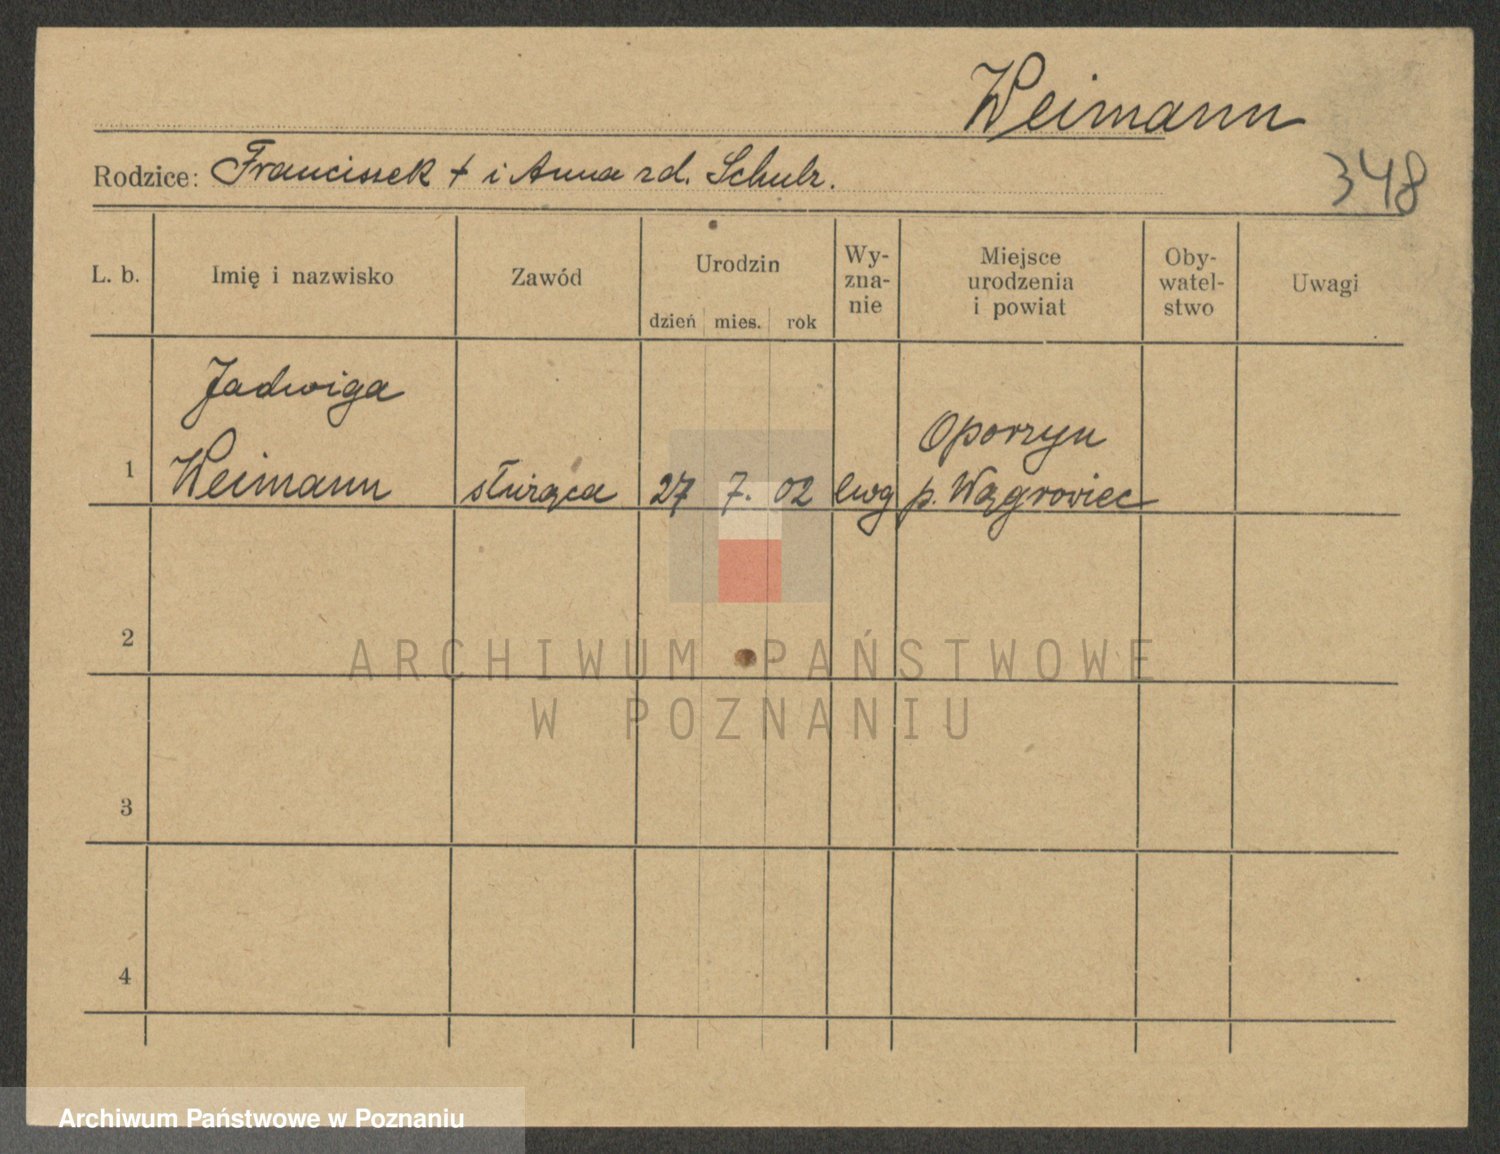 Weimann
348
Rodzice: Franciszek + i Anna zd. Schulz.
L. b. Imię i nazwisko Zawód Urodzin dzień mies. rok Wy-
zna-
nie Miejsce
urodzenia
i powiat Oby-
watel-
stwo Uwagi
Jadwiga
1 Weimann służąca 27 7. 02 ewg Oporzyn
p. Wągrowiec
2
3
4
ARCHIWUM PAŃSTWOWE
W POZNANIU
Archiwum Państwowe w Poznaniu